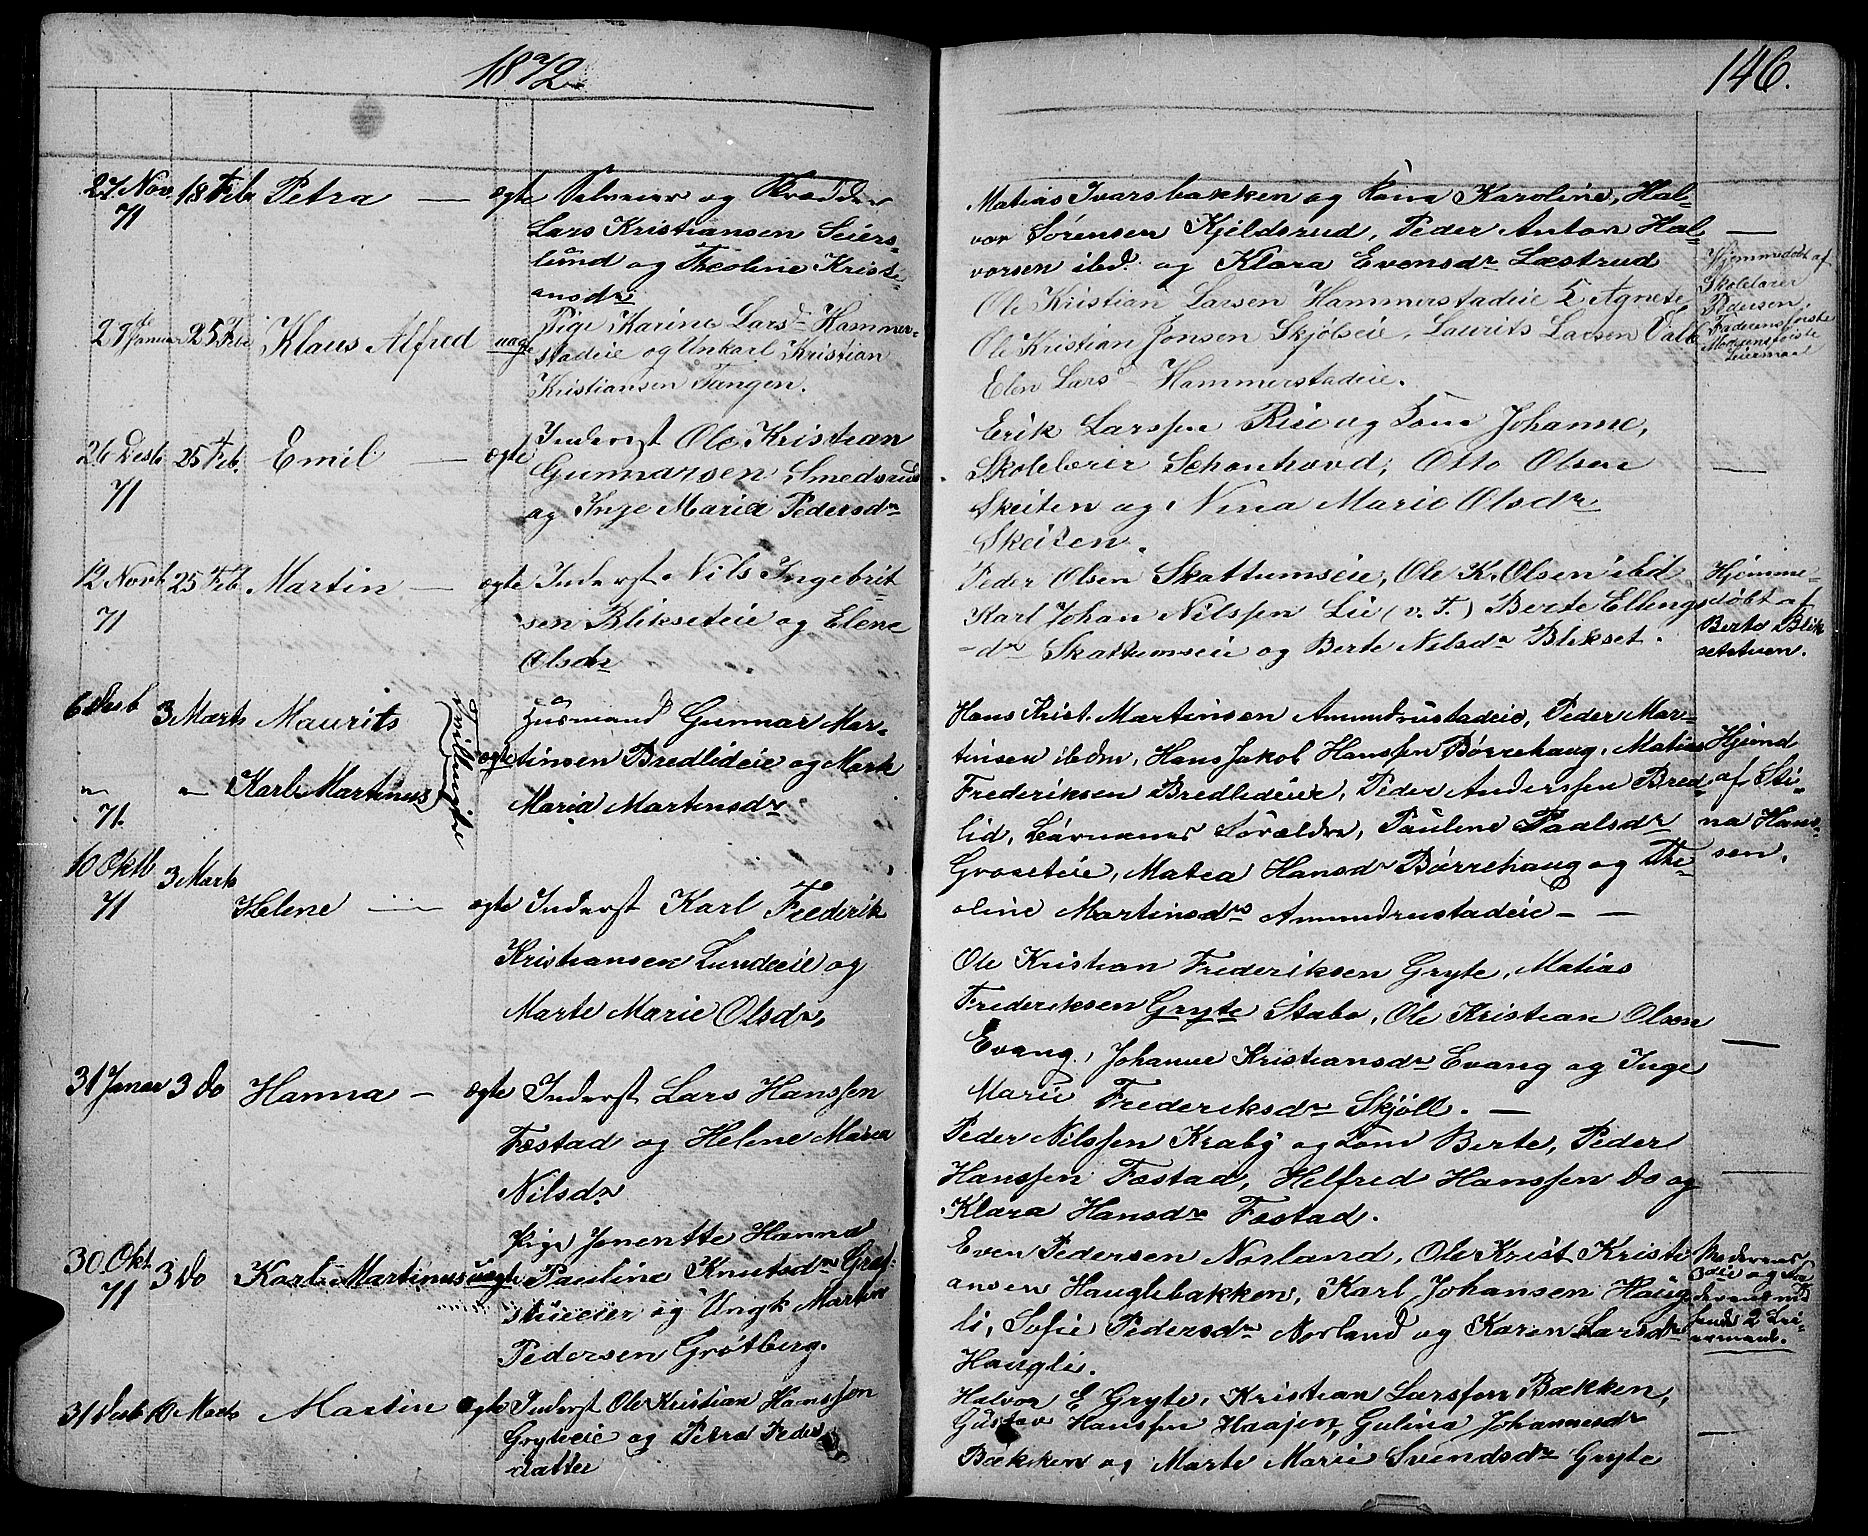 1872
27 Nov 18 Feb Petra — ægte Selveier og Skrædder
71
Lars Kristiansen Seiers-
lund og Theoline Kristi-
ansdr
29 Januar 25 Feb Klaus Alfred uægte Pige Karine Larsd Hammer-
stadeie og Unkarl Kristian
Kristiansen Tangen.
26 Desb 25 Feb. Emil — ægte Inderst Ole Kristian
71
Gunnarsen Smedsrud
og Inge Maria Pedersdr
12 Novb 25 Feb Martin — ægte Inderst Nils Ingebrit
71
sen Blikseteie og Elene
Olsdr
6 Desb 3 Marts Maurits Tvillinger ægte Husmand Gunnar Mar-
tinsen Bredlideie og Mark
" " Karl Martinus
71.
Maria Martinsdr
10 Oktb 3 Marts
71
Helene — ægte Inderst Karl Frederik
Kristiansen Lundeeie og
Marte Marie Olsdr,
31 Januar 3 do Hanna — ægte Inderst Lars Hanssen
Fæstad og Helene Maria
Nilsdr
30 Okt. 3 do Karl Martinus uægte Pige Jonentte Hanna
71
Pauline Knutsdr Græf-
stueeier og Ungk. Martin
Pedersen Grøtberg.
31 Desb 10 Marts Martin ægte Inderst Ole Kristian Hanssen
Gryteeie og Petra Peders
datter
146.
Matias Ivarsbakken og Kone Karoline, Hal-
vor Sørensen Kjeldsrud, Peder Anton Hal-
vorsen ibd. og Klara Evensdr Læstrud —
Ole Kristian Larsen Hammerstadeie & Agnete
Ole Kristian Jonsen Skjølseie, Laurits Larsen Dall
Elen Larsd Hammerstadeie.
Hjemmedøbt af
Skolelærer
Pedersen.
Faderens første
Moderens første
Leiermaal
Erik Larssen Rise og Kone Johanne,
Skolelærer Schonhovd, Otto Olsen —
Skeiten og Nina Marie Olsdr
Skeiten.
Peder Olsen Skattumseie, Ole K. Olsen ibd
Karl Johan Nilssen Lie (v. T.) Berte Ellings
-dr Skattumseie og Berte Nilsdr Blikset.
Hjemme-
døbt af
Berte Blik
setstuen.
Hans Krist. Martinsen Amundrustadeie, Peder Mar-
tinsen ibdm, Hans Jakob Hanssen Børrehaug, Matias
Frederiksen Bredlideier, Peder Anderssen Bred-
lid, Barnanes Forældre, Pauline Paalsdr
Groseteie, Matea Hansdr Børrehaug og The-
oline Martinsdr Amundrustadeie —
Hjemd
af Sti-
na Hans-
sen.
Ole Kristian Frederiksen Gryte, Matias
Frederiksen Gryte Stabo, Ole Kristian Olsen
Evang, Johanne Kristiansdr Evang og Inge
Marie Frederiksdr Skjøll. —
Peder Nilssen Kraby og Kone Berte, Peder
Hanssen Fæstad, Helfred Hanssen do og
Klara Hansdr Fæstad.
Even Pedersen Norland, Ole Krist Kristi
ansen Hauglibakken, Karl Johansen Haug
li, Sofie Pedersdr Norland og Karen Larsdr
Haugli.
Moderens
3die og Fa-
derens
2 Lei-
ermaal.
Halvor E Gryte, Kristian Larssen Bækken,
Gustav Hanssen Haajen, Gulina Johannesdr
Bækken og Marte Marie Svendsdr Gryte